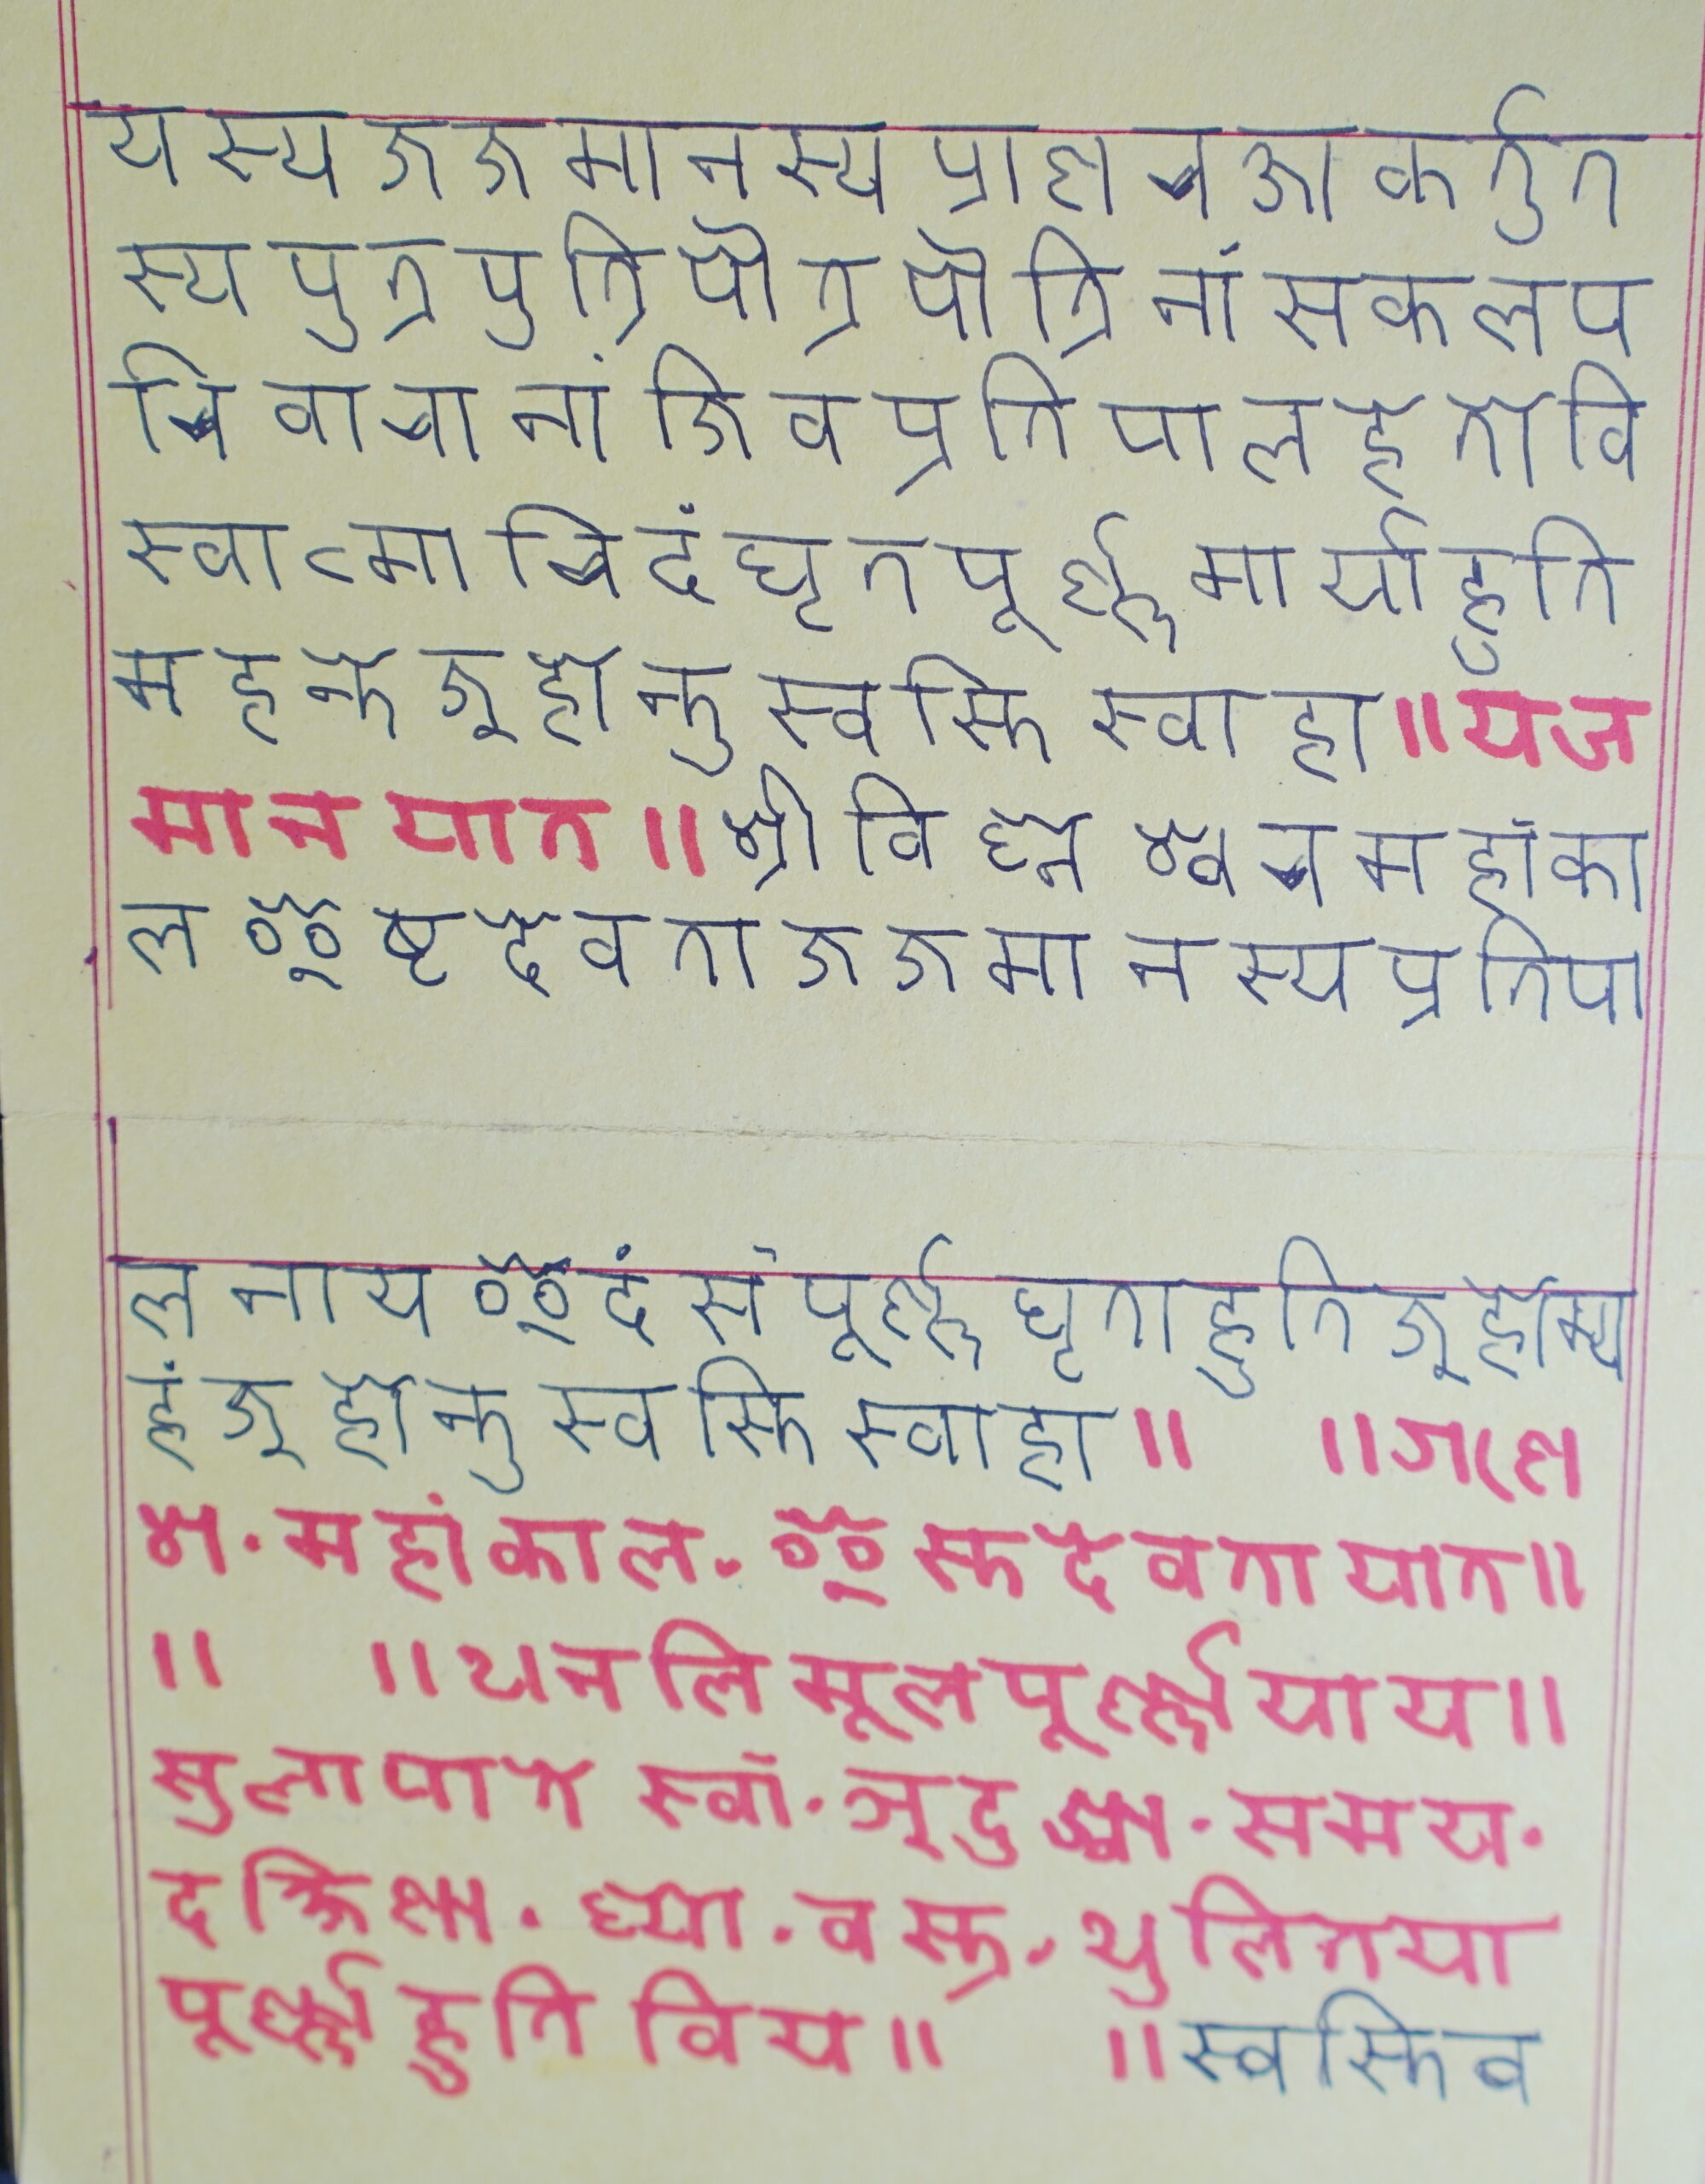 यस्यजजमानस्यप्राणरक्षाकर्तुत
स्यपुत्रपुत्रिपौत्रपौत्रिनांसकलप
रिवारानांजिवप्रतिपालहेतोवि
स्वात्मारिदंघृतपूर्ण्णमार्याहुति
महन्तेजूहोन्तुस्वस्तिस्वाहा॥यज
मानयात॥श्रीविघ्नेश्वरमहांका
लइष्टदेवताजजमानस्यप्रतिपा
लनायइदंसंपूर्ण्णघृताहुतिजूहोम्य
हंजूहोन्तुस्वस्तिस्वाहा॥ ॥गणे
श॰महांकाल॰इस्तदेवतायात॥
॥ ॥थनलिमूलपूर्ण्णायाय॥
मुलापात्रस्वां॰जूदुक्षा॰समय॰
दक्षिणा॰घ्या॰वस्त्र॰थुलितया
पूर्ण्णाहुतिविय॥ ॥स्वस्तिव